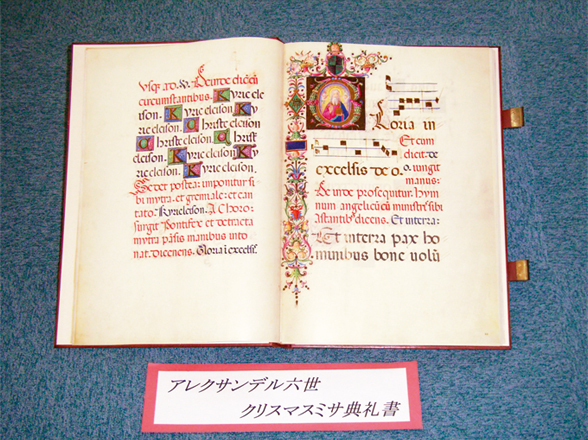 circumstantibus. Kyrie elei
ison. Kyrie eleison. Ky
rie eleison. Christe eleison.
Christe eleison. Christ
eleison. Kyrie eleison. Ky
rie eleison. Kyrie eleison.
Sedet postea: imponitur si
bi mytra. et gremiale: et can
tato. Kyrieleison. A Choro:
surgit Pontifex et detracta
mytra passis manibus into
nat. Dicenens. Gloria i excelsis.
Gloria in
excelsis deo.
Et cum
dicit. deo
o. iungit
manus:
Deinde prosequitur. Hym
num angelicum ministris sibi
Astantibus dicens. Et in terra:
Et in terra pax ho
minibus bone volu
アレクサンデル六世
クリスマスミサ典礼書